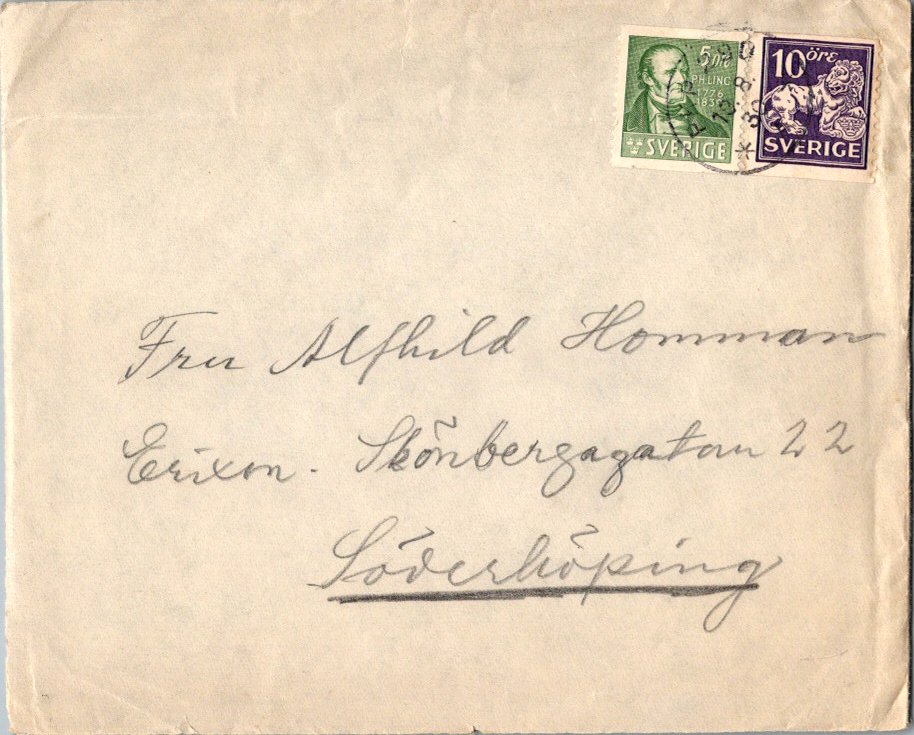 5 öre
P.H. LING
1776
1839
SVERIGE
10 öre
SVERIGE
12.8.
39
Fru Alfhild Homman
Erixon. Skönbergagatan 22
Söderköping